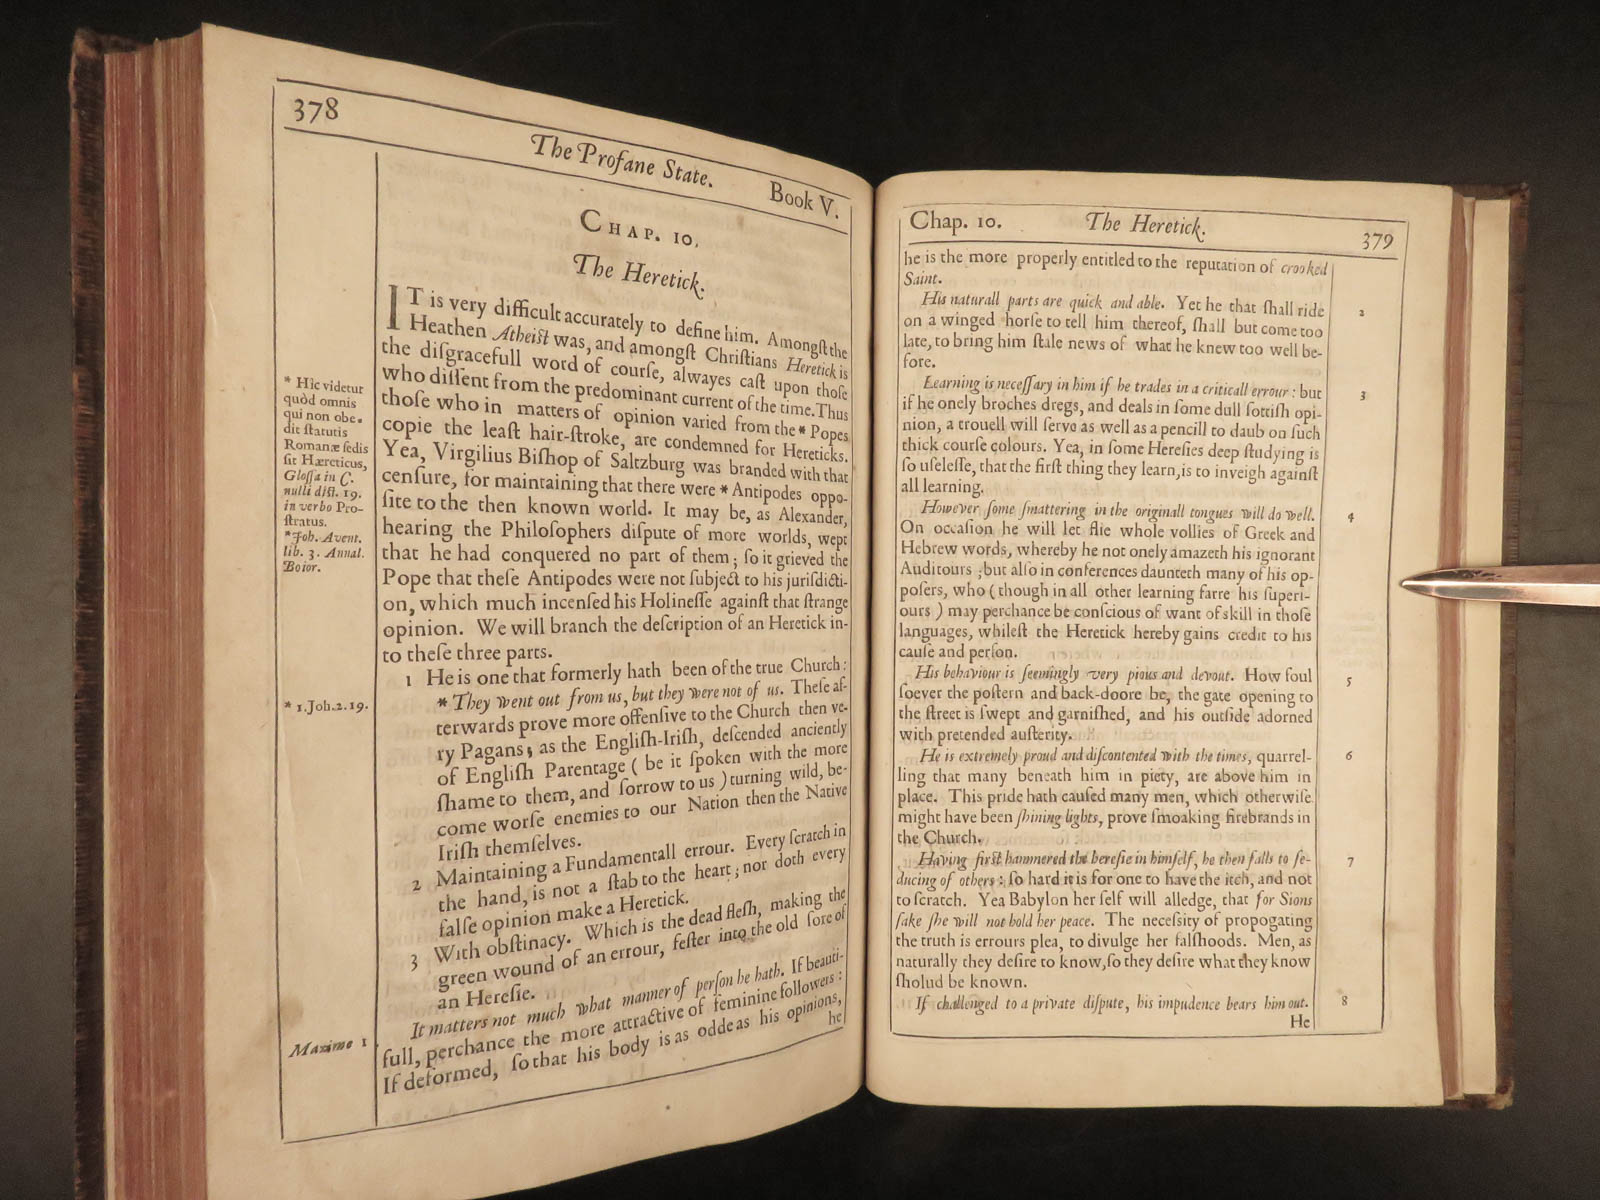 378
The Profane State.
Book V.
CHAP. 10.
The Heretick.
IT is very difficult accurately to define him. Amongſt the
Heathen Atheiſt was, and amongſt Chriſtians Heretick is
the diſgracefull word of courſe, alwayes caſt upon thoſe
who diſſent from the predominant current of the time. Thus
thoſe who in matters of opinion varied from the * Popes
copie the leaſt hair-ſtroke, are condemned for Hereticks.
Yea, Virgilius Biſhop of Saltzburg was branded with that
cenſure, for maintaining that there were * Antipodes oppo-
ſite to the then known world. It may be, as Alexander,
hearing the Philoſophers diſpute of more worlds, wept
that he had conquered no part of them; ſo it grieved the
Pope that theſe Antipodes were not ſubject to his juriſdicti-
on, which much incenſed his Holineſſe againſt that ſtrange
opinion. We will branch the deſcription of an Heretick in-
to theſe three parts.
1 He is one that formerly hath been of the true Church:
* They went out from us, but they were not of us. Theſe af-
terwards prove more offenſive to the Church then ve-
ry Pagans; as the Engliſh-Iriſh, deſcended anciently
of Engliſh Parentage (be it ſpoken with the more
ſhame to them, and ſorrow to us) turning wild, be-
come worſe enemies to our Nation then the Native
Iriſh themſelves.
2 Maintaining a Fundamentall errour. Every ſcratch in
the hand, is not a ſtab to the heart; nor doth every
falſe opinion make a Heretick.
3 With obſtinacy. Which is the dead fleſh, making the
green wound of an errour, feſter into the old ſore of
an Hereſie.
It matters not much what manner of perſon he hath. If beauti-
full, perchance the more attractive of feminine followers:
If deformed, ſo that his body is as odde as his opinions,
he
* Hic videtur
quòd omnis
qui non obe-
dit ſtatutis
Romanæ ſedis
ſit Hæreticus,
Gloſſa in C.
nulli diſt. 19.
in verbo Pro-
ſtratus.
* Joh. Avent.
lib. 3. Annal.
Boior.
* 1. Joh. 2. 19.
Maxime 1
Chap. 10.
The Heretick.
379
he is the more properly entitled to the reputation of crooked
Saint.
His naturall parts are quick and able. Yet he that ſhall ride
on a winged horſe to tell him thereof, ſhall but come too
late, to bring him ſtale news of what he knew too well be-
fore.
Learning is neceſſary in him if he trades in a criticall errour: but
if he onely broches dregs, and deals in ſome dull ſottiſh opi-
nion, a trouell will ſerve as well as a pencill to daub on ſuch
thick courſe colours. Yea, in ſome Hereſies deep ſtudying is
ſo uſeleſſe, that the firſt thing they learn, is to inveigh againſt
all learning.
However ſome ſmattering in the originall tongues will do well.
On occaſion he will let flie whole vollies of Greek and
Hebrew words, whereby he not onely amazeth his ignorant
Auditours, but alſo in conferences daunteth many of his op-
poſers, who (though in all other learning farre his ſuperi-
ours) may perchance be conſcious of want of skill in thoſe
languages, whileſt the Heretick hereby gains credit to his
cauſe and perſon.
His behaviour is ſeemingly very pious and devout. How foul
ſoever the poſtern and back-doore be, the gate opening to
the ſtreet is ſwept and garniſhed, and his outſide adorned
with pretended auſterity.
He is extremely proud and diſcontented with the times, quarrel-
ling that many beneath him in piety, are above him in
place. This pride hath cauſed many men, which otherwiſe
might have been ſhining lights, prove ſmoaking firebrands in
the Church.
Having firſt hammered the hereſie in himſelf, he then falls to ſe-
ducing of others: ſo hard it is for one to have the itch, and not
to ſcratch. Yea Babylon her ſelf will alledge, that for Sions
ſake ſhe will not hold her peace. The neceſſity of propogating
the truth is errours plea, to divulge her falſhoods. Men, as
naturally they deſire to know, ſo they deſire what they know
ſholud be known.
If challenged to a private diſpute, his impudence bears him out.
He
2
3
4
5
6
7
8